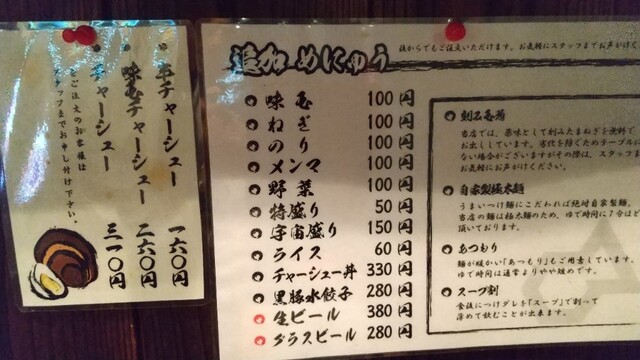 半チャーシュー 一六〇円
味玉チャーシュー 二六〇円
チャーシュー 三一〇円
とご注文のお客様は
スタッフまでお申し付け下さい。
追加 めにゅう
後からでもご注文いただけます。お気軽にスタッフまでお声がけく
味玉 100円
ねぎ 100円
のり 100円
メンマ 100円
野菜 100円
特盛り 50円
宇宙盛り 150円
ライス 60円
チャーシュー丼 330円
黒豚水餃子 280円
生ビール 380円
グラスビール 280円
刻み玉葱
当店では、薬味として刻みたまねぎを無料で
お出ししています。劣化を除くためテーブルに
ない場合がございますがその際は、スタッフま
お気軽にお声がけください。
自家製極太麺
うまいつけ麺にこだわれば絶対自家製麺。
当店の麺は極太麺のため、ゆで時間に7分ほど
頂いております。
あつもり
麺が暖かい「あつもり」もご用意しています。
ゆで時間は通常よりやや短めです。
スープ割
食後につけダレを「スープ」で割って
薄めて飲むことが出来ます。